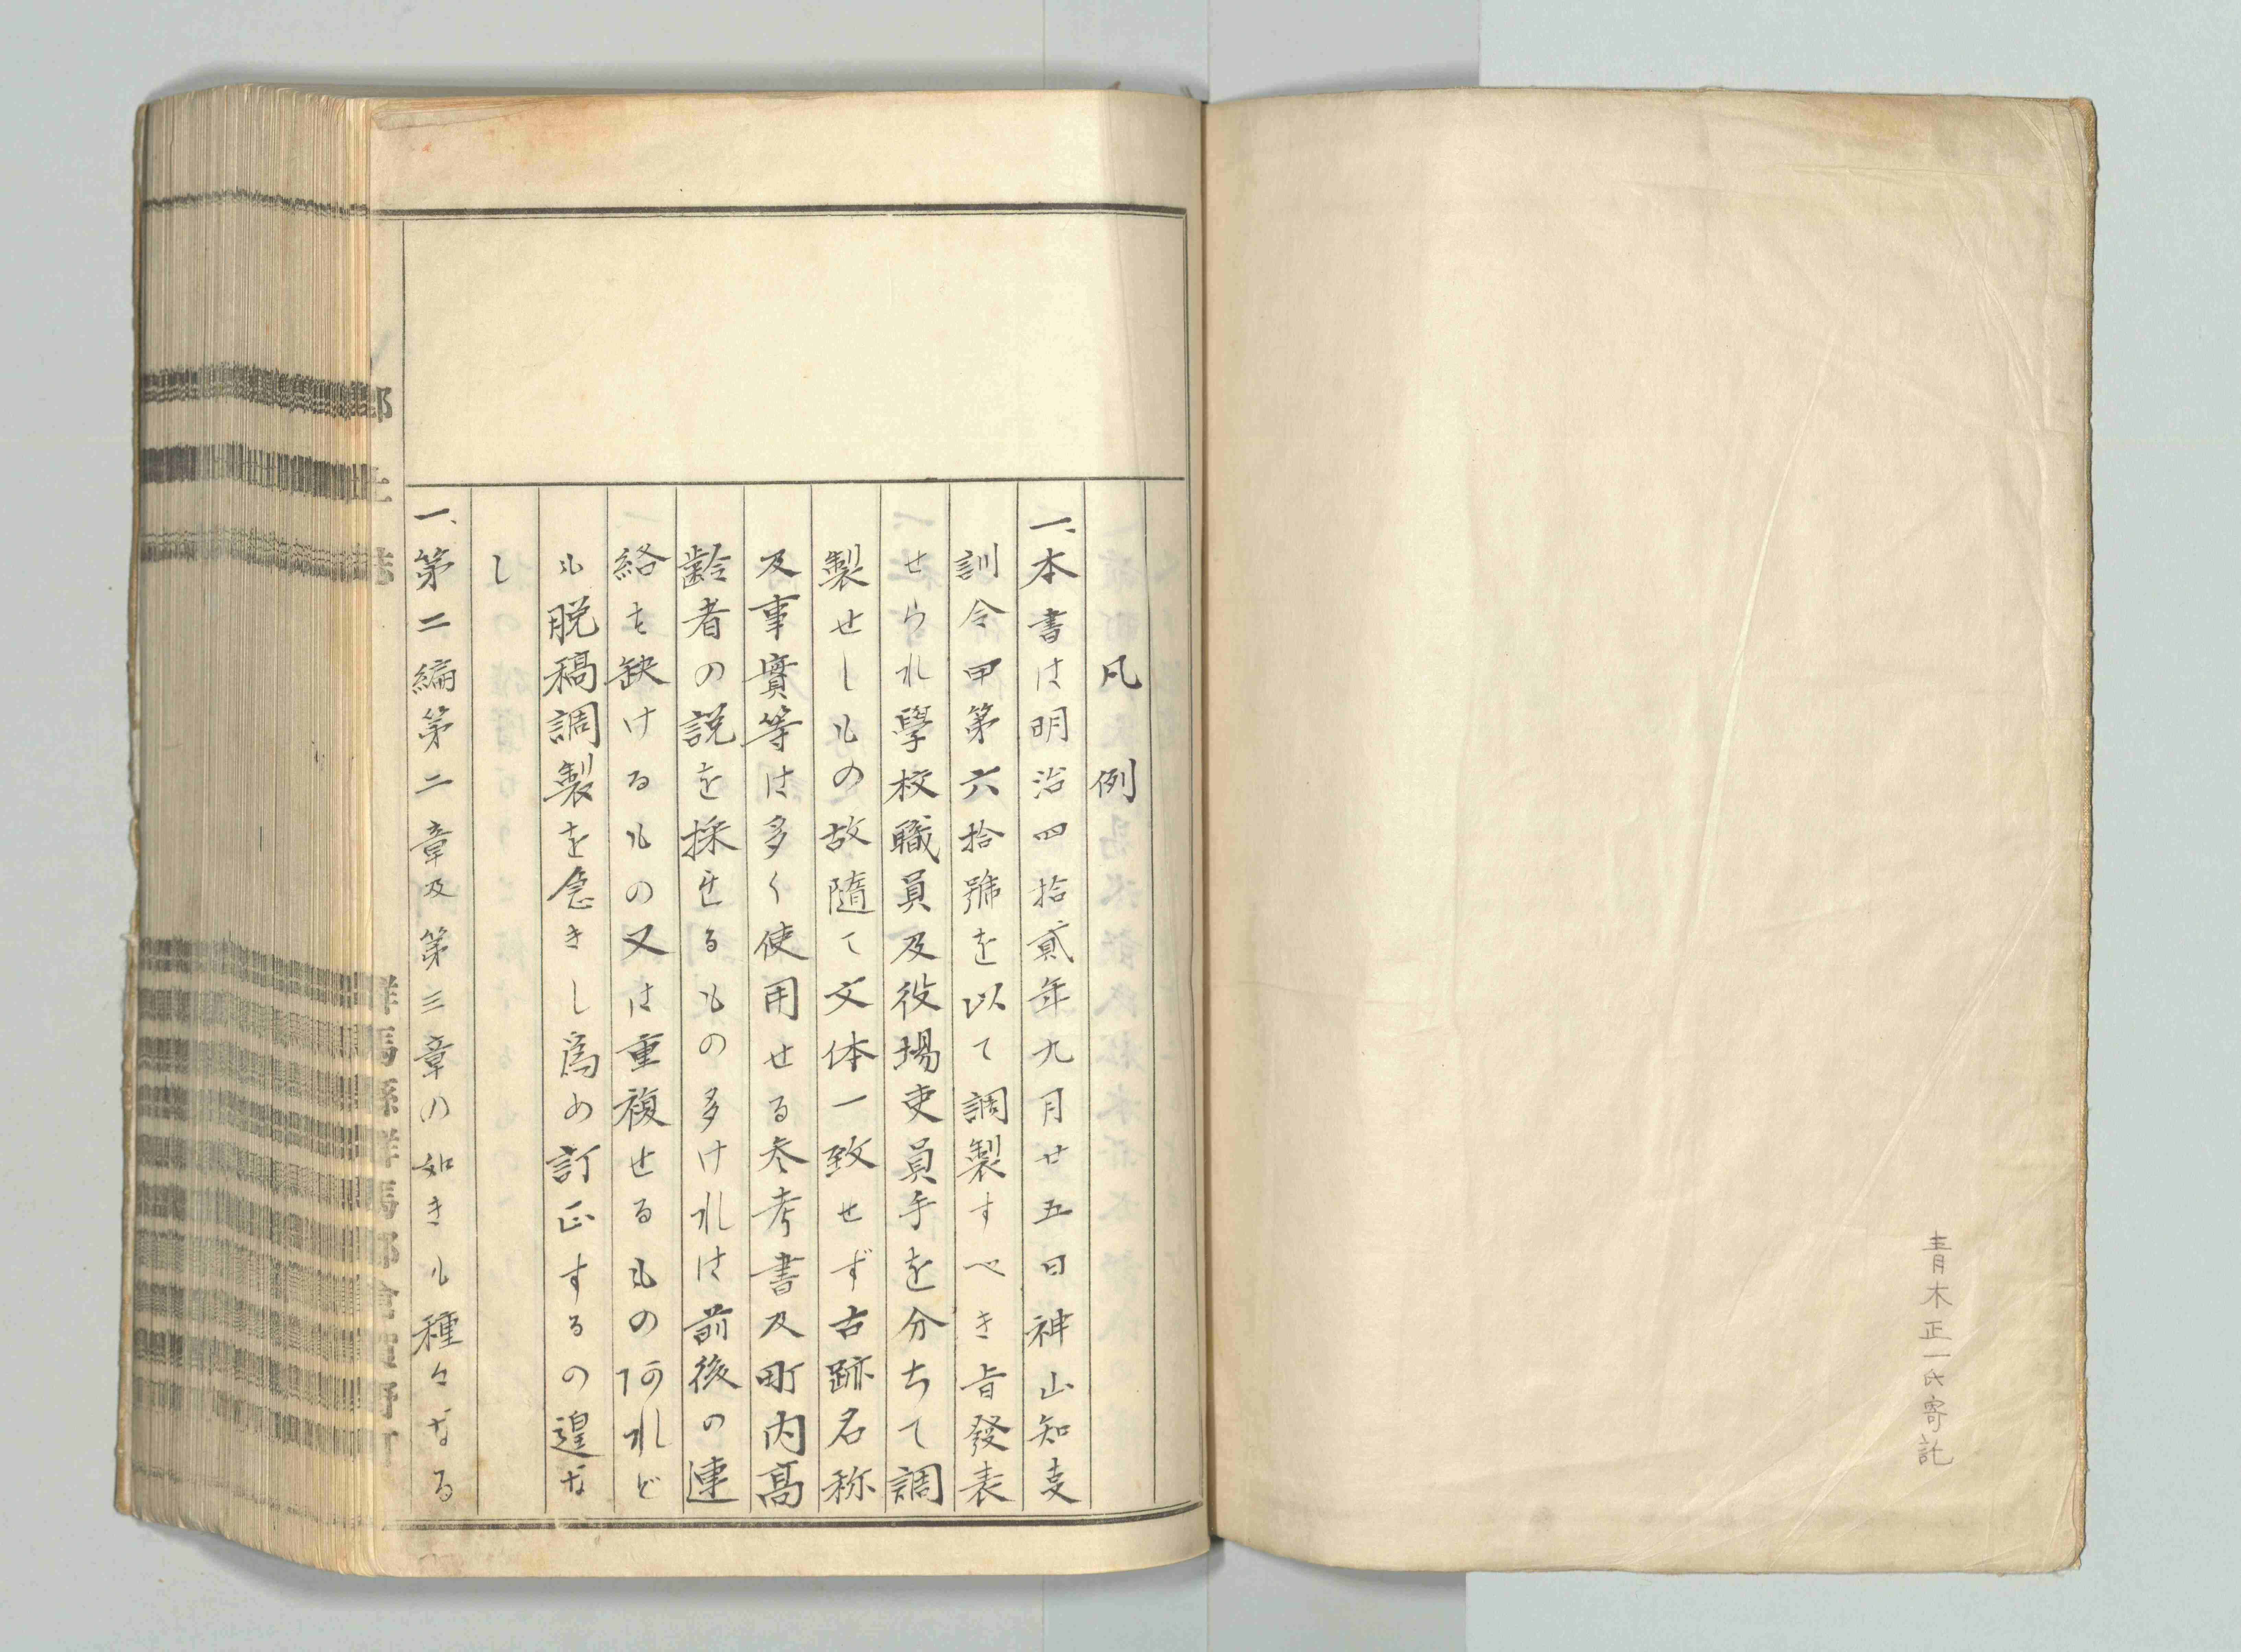 青木正一氏寄託
凡例
一、本書は明治四拾貳年九月廿五日神山知支
訓令甲第六拾號を以て調製すべき旨發表
せられ學校職員及役場吏員手を分ちて調
製せしもの故隨て文体一致せず古跡名称
及事實等は多く使用せる参考書及町内高
齢者の説を採せるもの多ければ前後の連
絡を缺けるもの又は重複せるものあれど
も脱稿調製を急きし為め訂正するの遑な
し
一、第二編第二章及第三章の如きも種々なる
郷土誌
群馬縣群馬郡倉賀野町